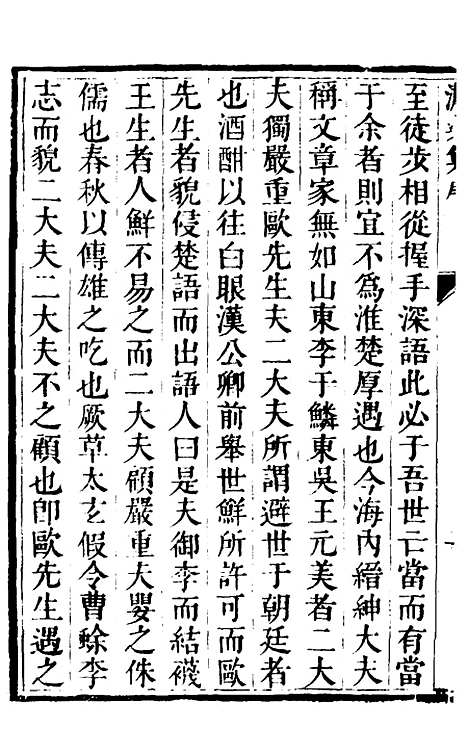 至徒步相從握手深語此必于吾世亡當而有當
于余者則宜不為淮楚厚遇也今海內縉紳大夫
稱文章家無如山東李于鱗東吳王元美者二大
夫獨嚴重歐先生夫二大夫所謂避世于朝廷者
也酒酣以往白眼漢公卿前舉世鮮所許可而歐
先生者貌侵楚語而出語人曰是夫御李而結襪
王生者人鮮不易之而二大夫顧嚴重夫嬰之侏
儒也春秋以傳雄之吃也厥草太玄假令曹蜍李
志而貌二大夫二大夫不之顧也卽歐先生遇之